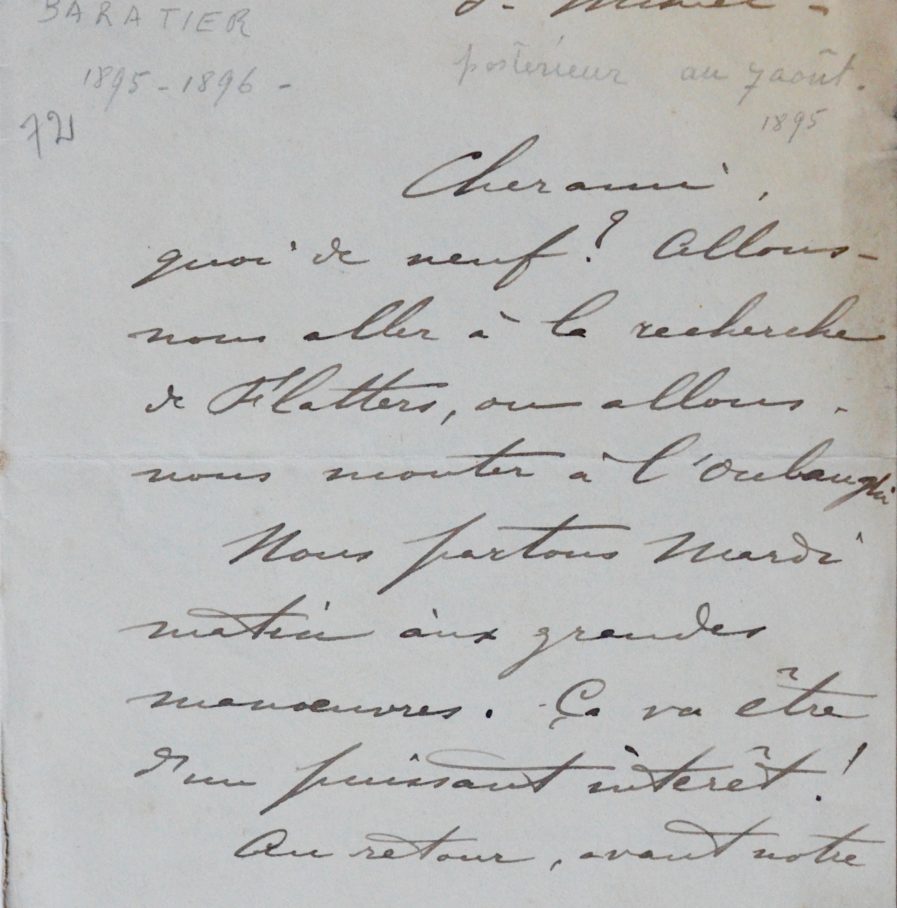 BARATIER
1895-1896-
posterieur au 7 août.
1895
Cher ami,
quoi de neuf? Allons-
nous aller à la recherche
de Flatters, ou allons-
nous monter à l'Oubanghi
Nous partons Mardi
matin aux grandes
manoeuvres. Ça va être
d'un puissant intérêt!
Au retour, avant notre